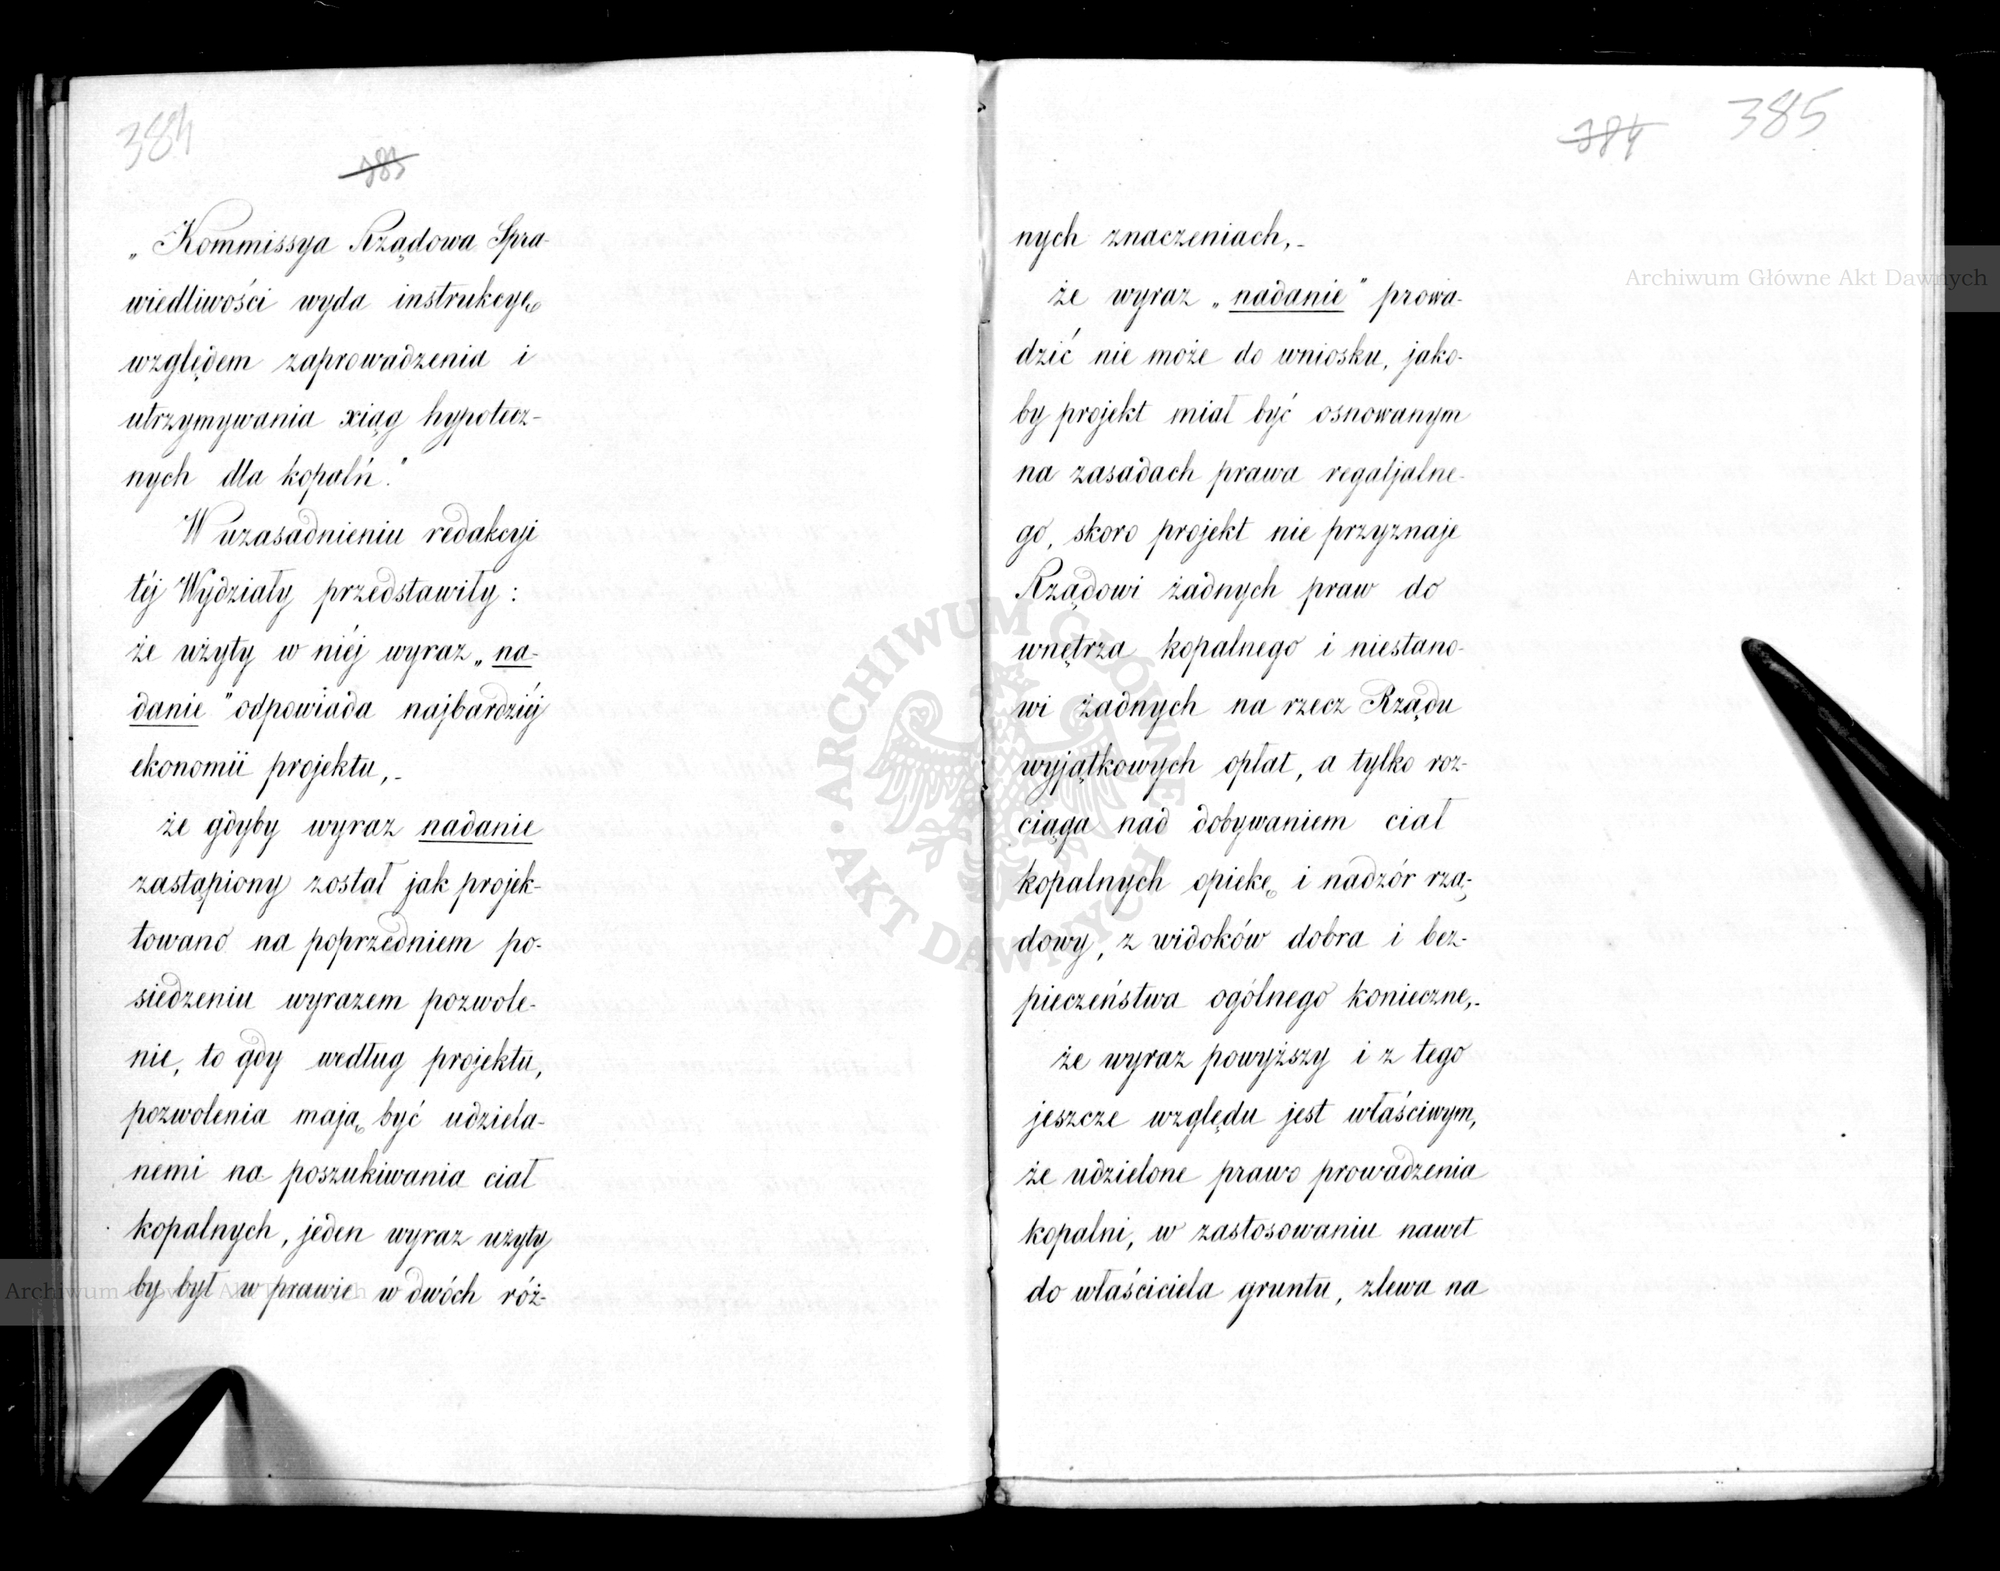 384
383
„Kommissya Rządowa Spra-
wiedliwości wyda instrukcyę
względem zaprowadzenia i
utrzymywania xiąg hypotecz-
nych dla kopalń."
W uzasadnieniu redakcyi
téj Wydziały przedstawiły:
że użyty w niéj wyraz „na-
danie" odpowiada najbardziéj
ekonomii projektu,-
że gdyby wyraz nadanie
zastąpiony został jak projek-
towano na poprzedniem po-
siedzeniu wyrazem pozwole-
nie, to gdy według projektu,
pozwolenia mają być udziela-
nemi na poszukiwania ciał
kopalnych, jeden wyraz użyty
by był w prawie w dwóch róż-
384
385
nych znaczeniach,-
że wyraz „nadanie" prowa-
dzić nie może do wniosku, jako-
by projekt miał być osnowanym
na zasadach prawa regaljalne-
go, skoro projekt nie przyznaje
Rządowi żadnych praw do
wnętrza kopalnego i niestano-
wi żadnych na rzecz Rządu
wyjątkowych opłat, a tylko roz-
ciąga nad dobywaniem ciał
kopalnych opiekę i nadzór rzą-
dowy, z widoków dobra i bez-
pieczeństwa ogólnego konieczne,-
że wyraz powyższy i z tego
jeszcze względu jest właściwym,
że udzielone prawo prowadzenia
kopalni, w zastosowaniu nawet
do właściciela gruntu, zlewa na
Archiwum Główne Akt Dawnych
ARCHIWUM GŁÓWNE
AKT DAWNYCH
Archiwum Główne Akt Dawnych